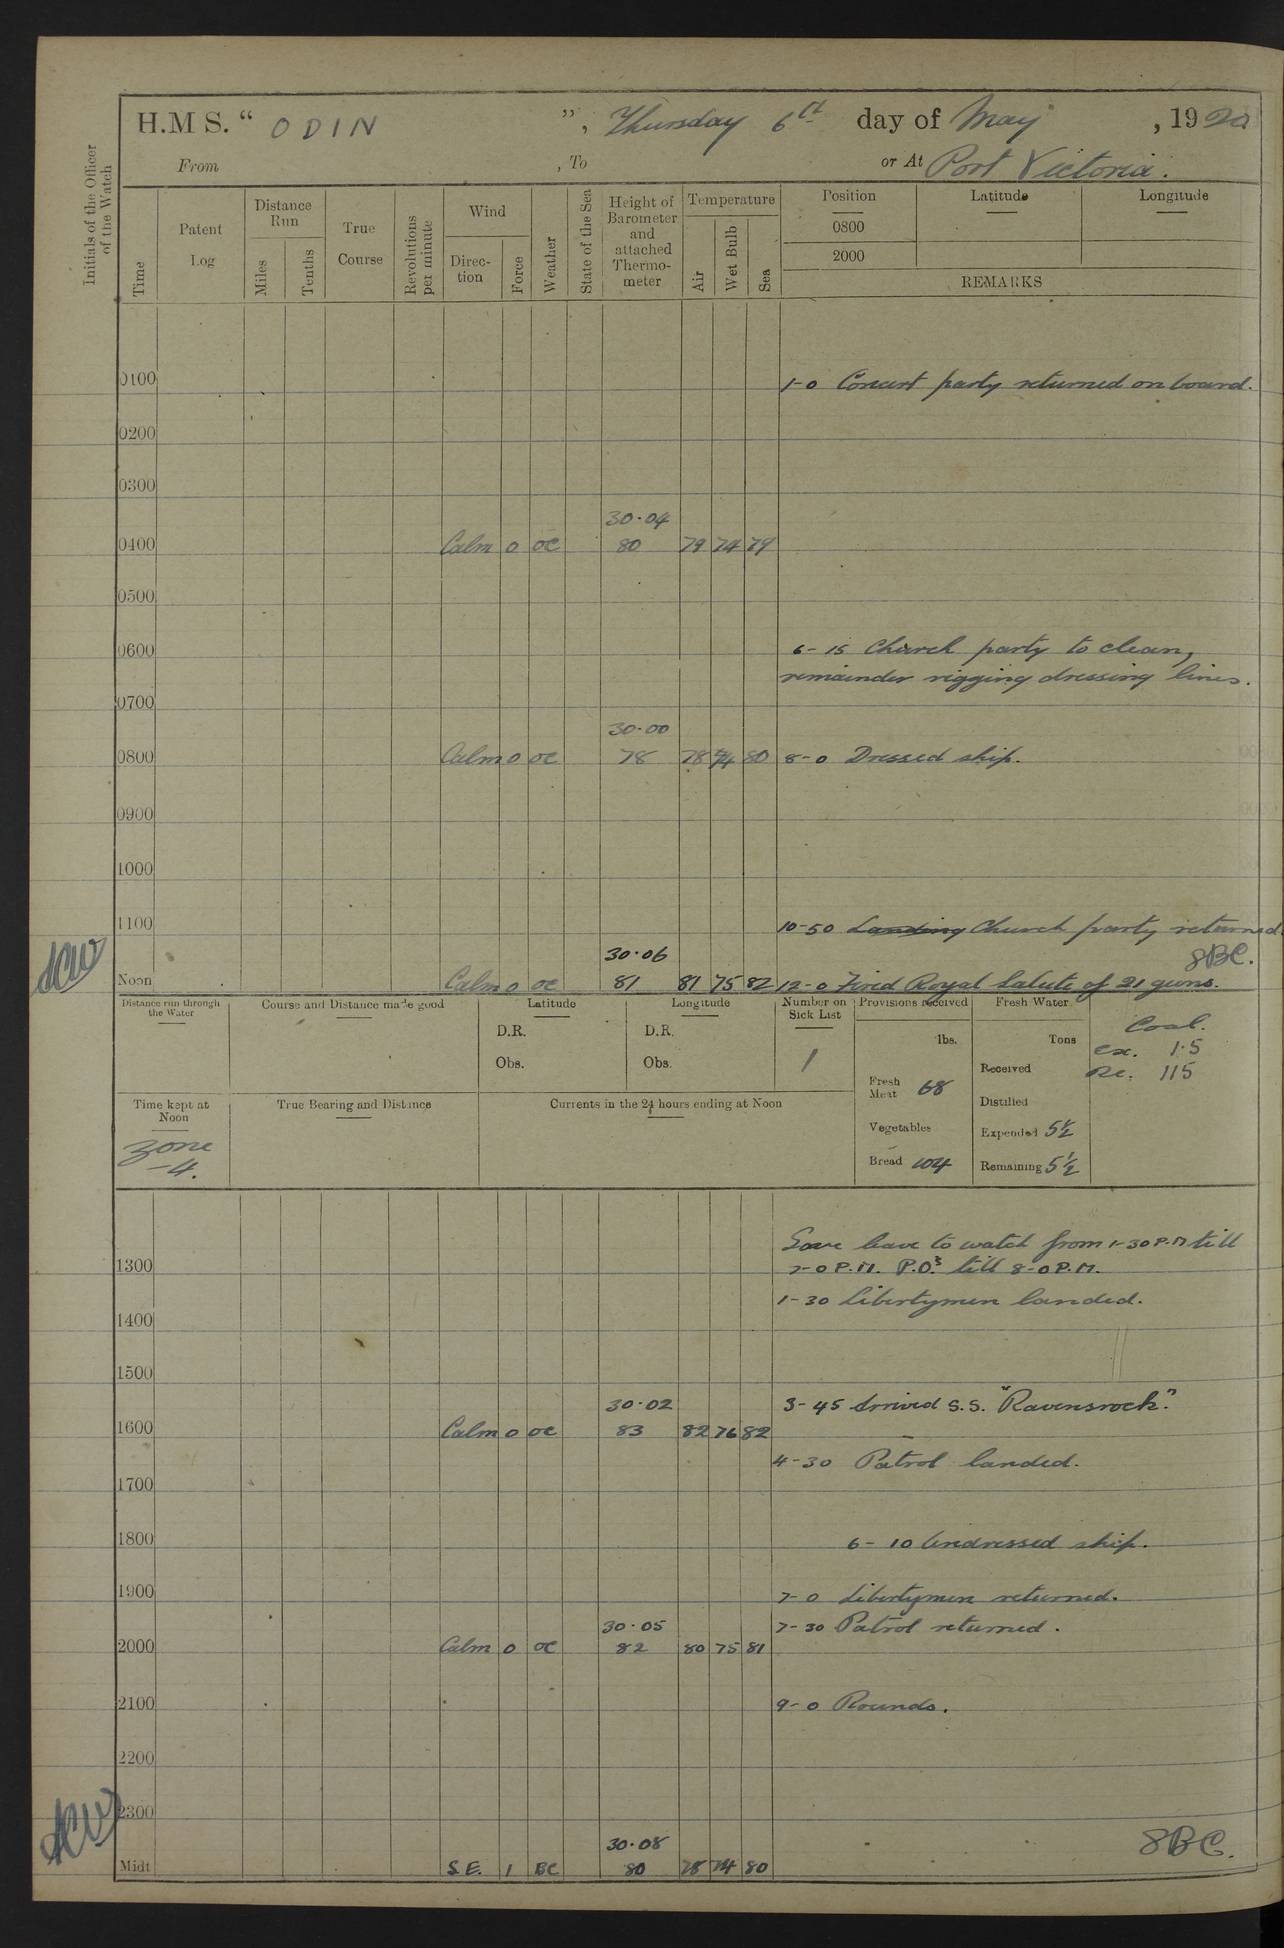 H.M S. “ ODIN ”, Thursday 6th day of May , 1920
From , To or At Port Victoria.
Initials of the Officer of the Watch
Time
Patent Log
Distance Run
Miles
Tenths
True Course
Revolutions per minute
Wind
Direc-tion
Force
Weather
State of the Sea
Height of Barometer and attached Thermo-meter
Temperature
Air
Wet Bulb
Sea
Position Latitude Longitude
0800
2000
REMARKS
0100 1-0 Concert party returned on board.
0200
0300
30·04
0400 Calm 0 oc 80 79 74 79
0500
0600 6-15 Church party to clean,
remainder rigging dressing lines.
0700
30·00
0800 Calm 0 oc 78 78 74 80 8-0 Dressed ship.
0900
1000
1100 10-50 Landing Church party returned.
30·06 SBC.
Noon Calm 0 oc 81 81 75 82 12-0 Fired Royal Salute of 21 guns.
Distance run through the Water
Course and Distance made good
Latitude
D.R.
Obs.
Longitude
D.R.
Obs.
Number on Sick List
1
Provisions received
lbs.
Fresh Meat 68
Vegetables
Bread 104
Fresh Water
Tons
Received
Distilled
Expended 5½
Remaining 5½
Coal.
Ex. 1·5
Re. 115
Time kept at Noon
Zone
-4.
True Bearing and Distance
Currents in the 24 hours ending at Noon
Gave leave to watch from 1-30 P.M till
1300 7-0 P.M. P.O.s till 8-0 P.M.
1-30 Libertymen landed.
1400
1500
30·02 3-45 Arrived S.S. "Ravensrock".
1600 Calm 0 oc 83 82 76 82
4-30 Patrol landed.
1700
1800 6-10 Undressed ship.
1900 7-0 Libertymen returned.
30·05 7-30 Patrol returned.
2000 Calm 0 oc 82 80 75 81
2100 9-0 Rounds.
2200
2300
30·08 SBC.
Midt S.E. 1 BC 80 78 74 80